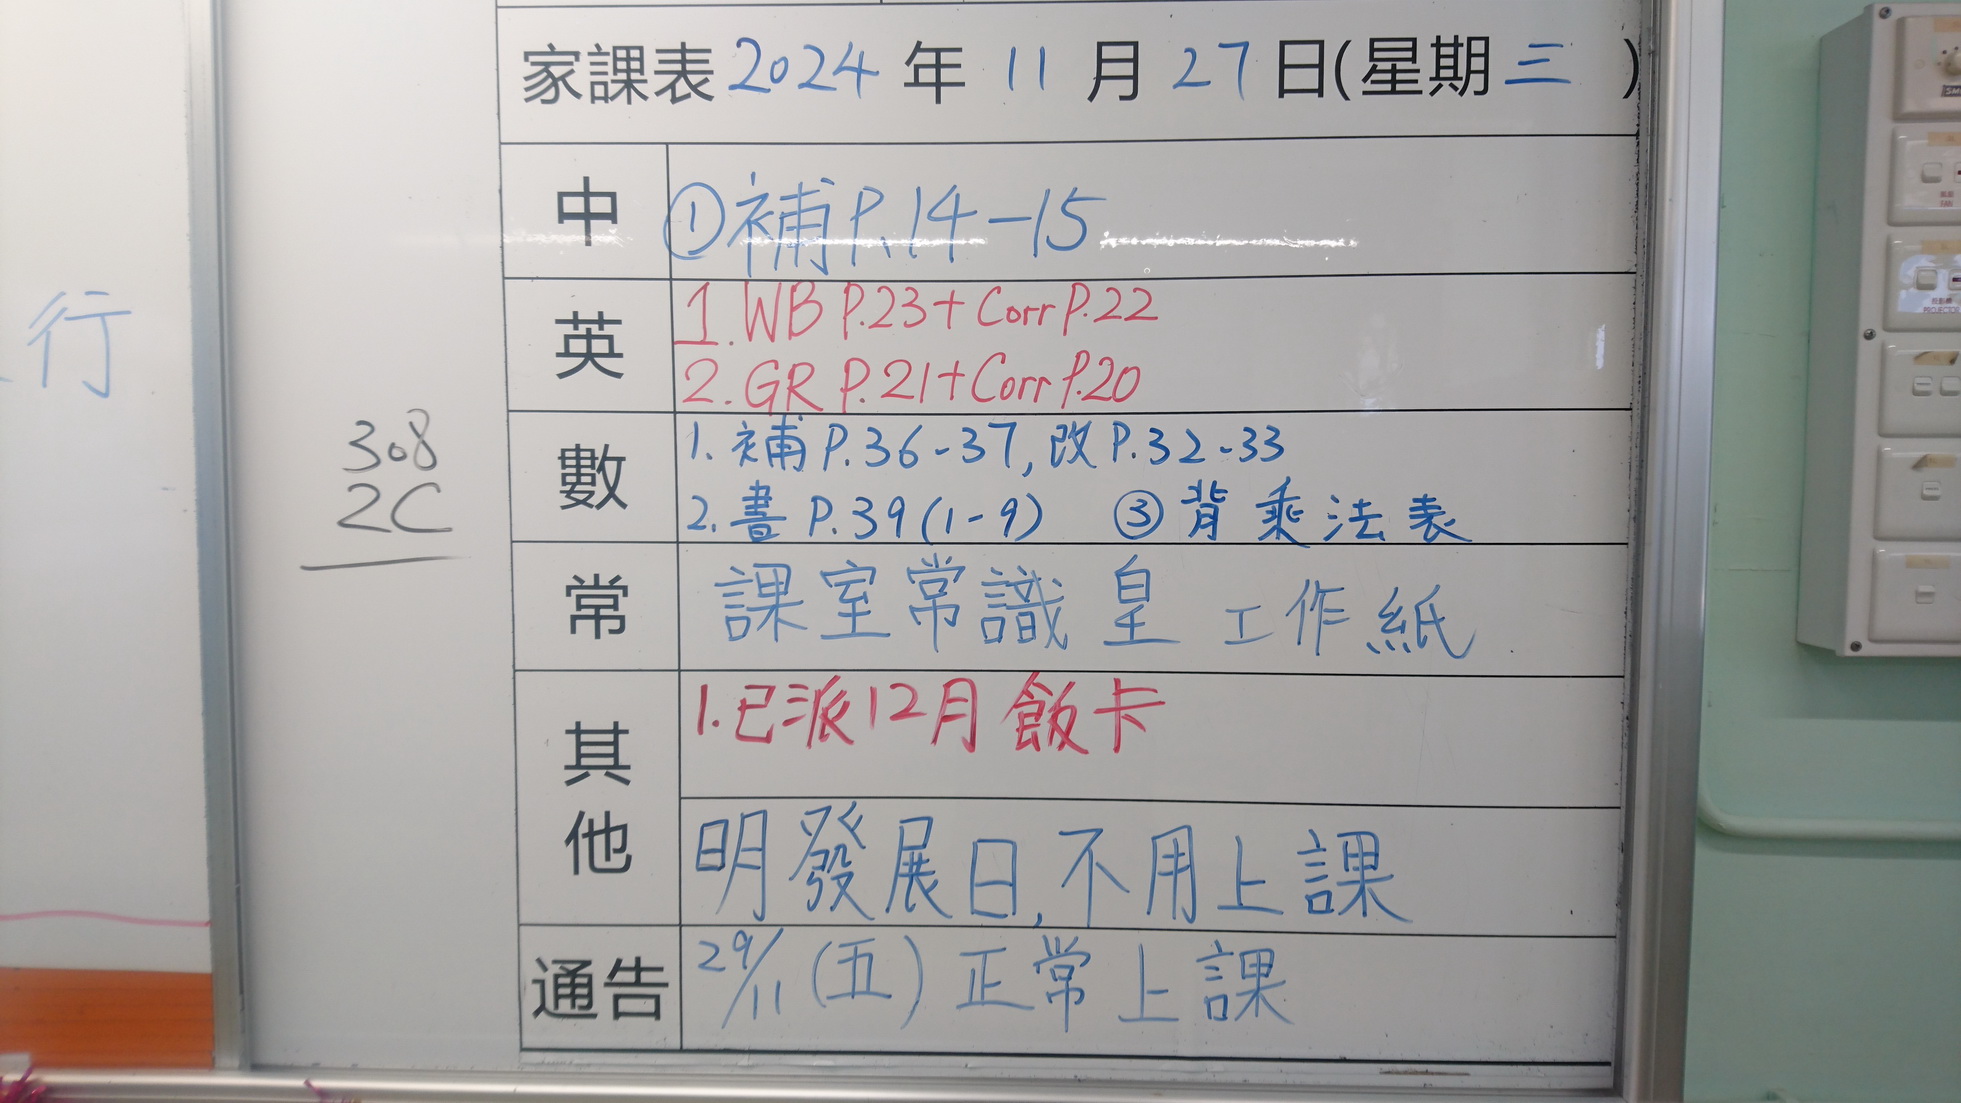 家課表 2024 年 11 月 27 日(星期三)
中 ①補 P.14-15
英 1. WB P.23+Corr P.22
2. GR P.21+Corr P.20
數 1. 補 P.36-37, 改 P.32-33
2. 書 P.39(1-9) ③ 背乘法表
常 課室常識 皇 工作紙
其他 1. 已派12月飯卡
明發展日, 不用上課
通告 29/11 (五) 正常上課
308
2C
行
FAN